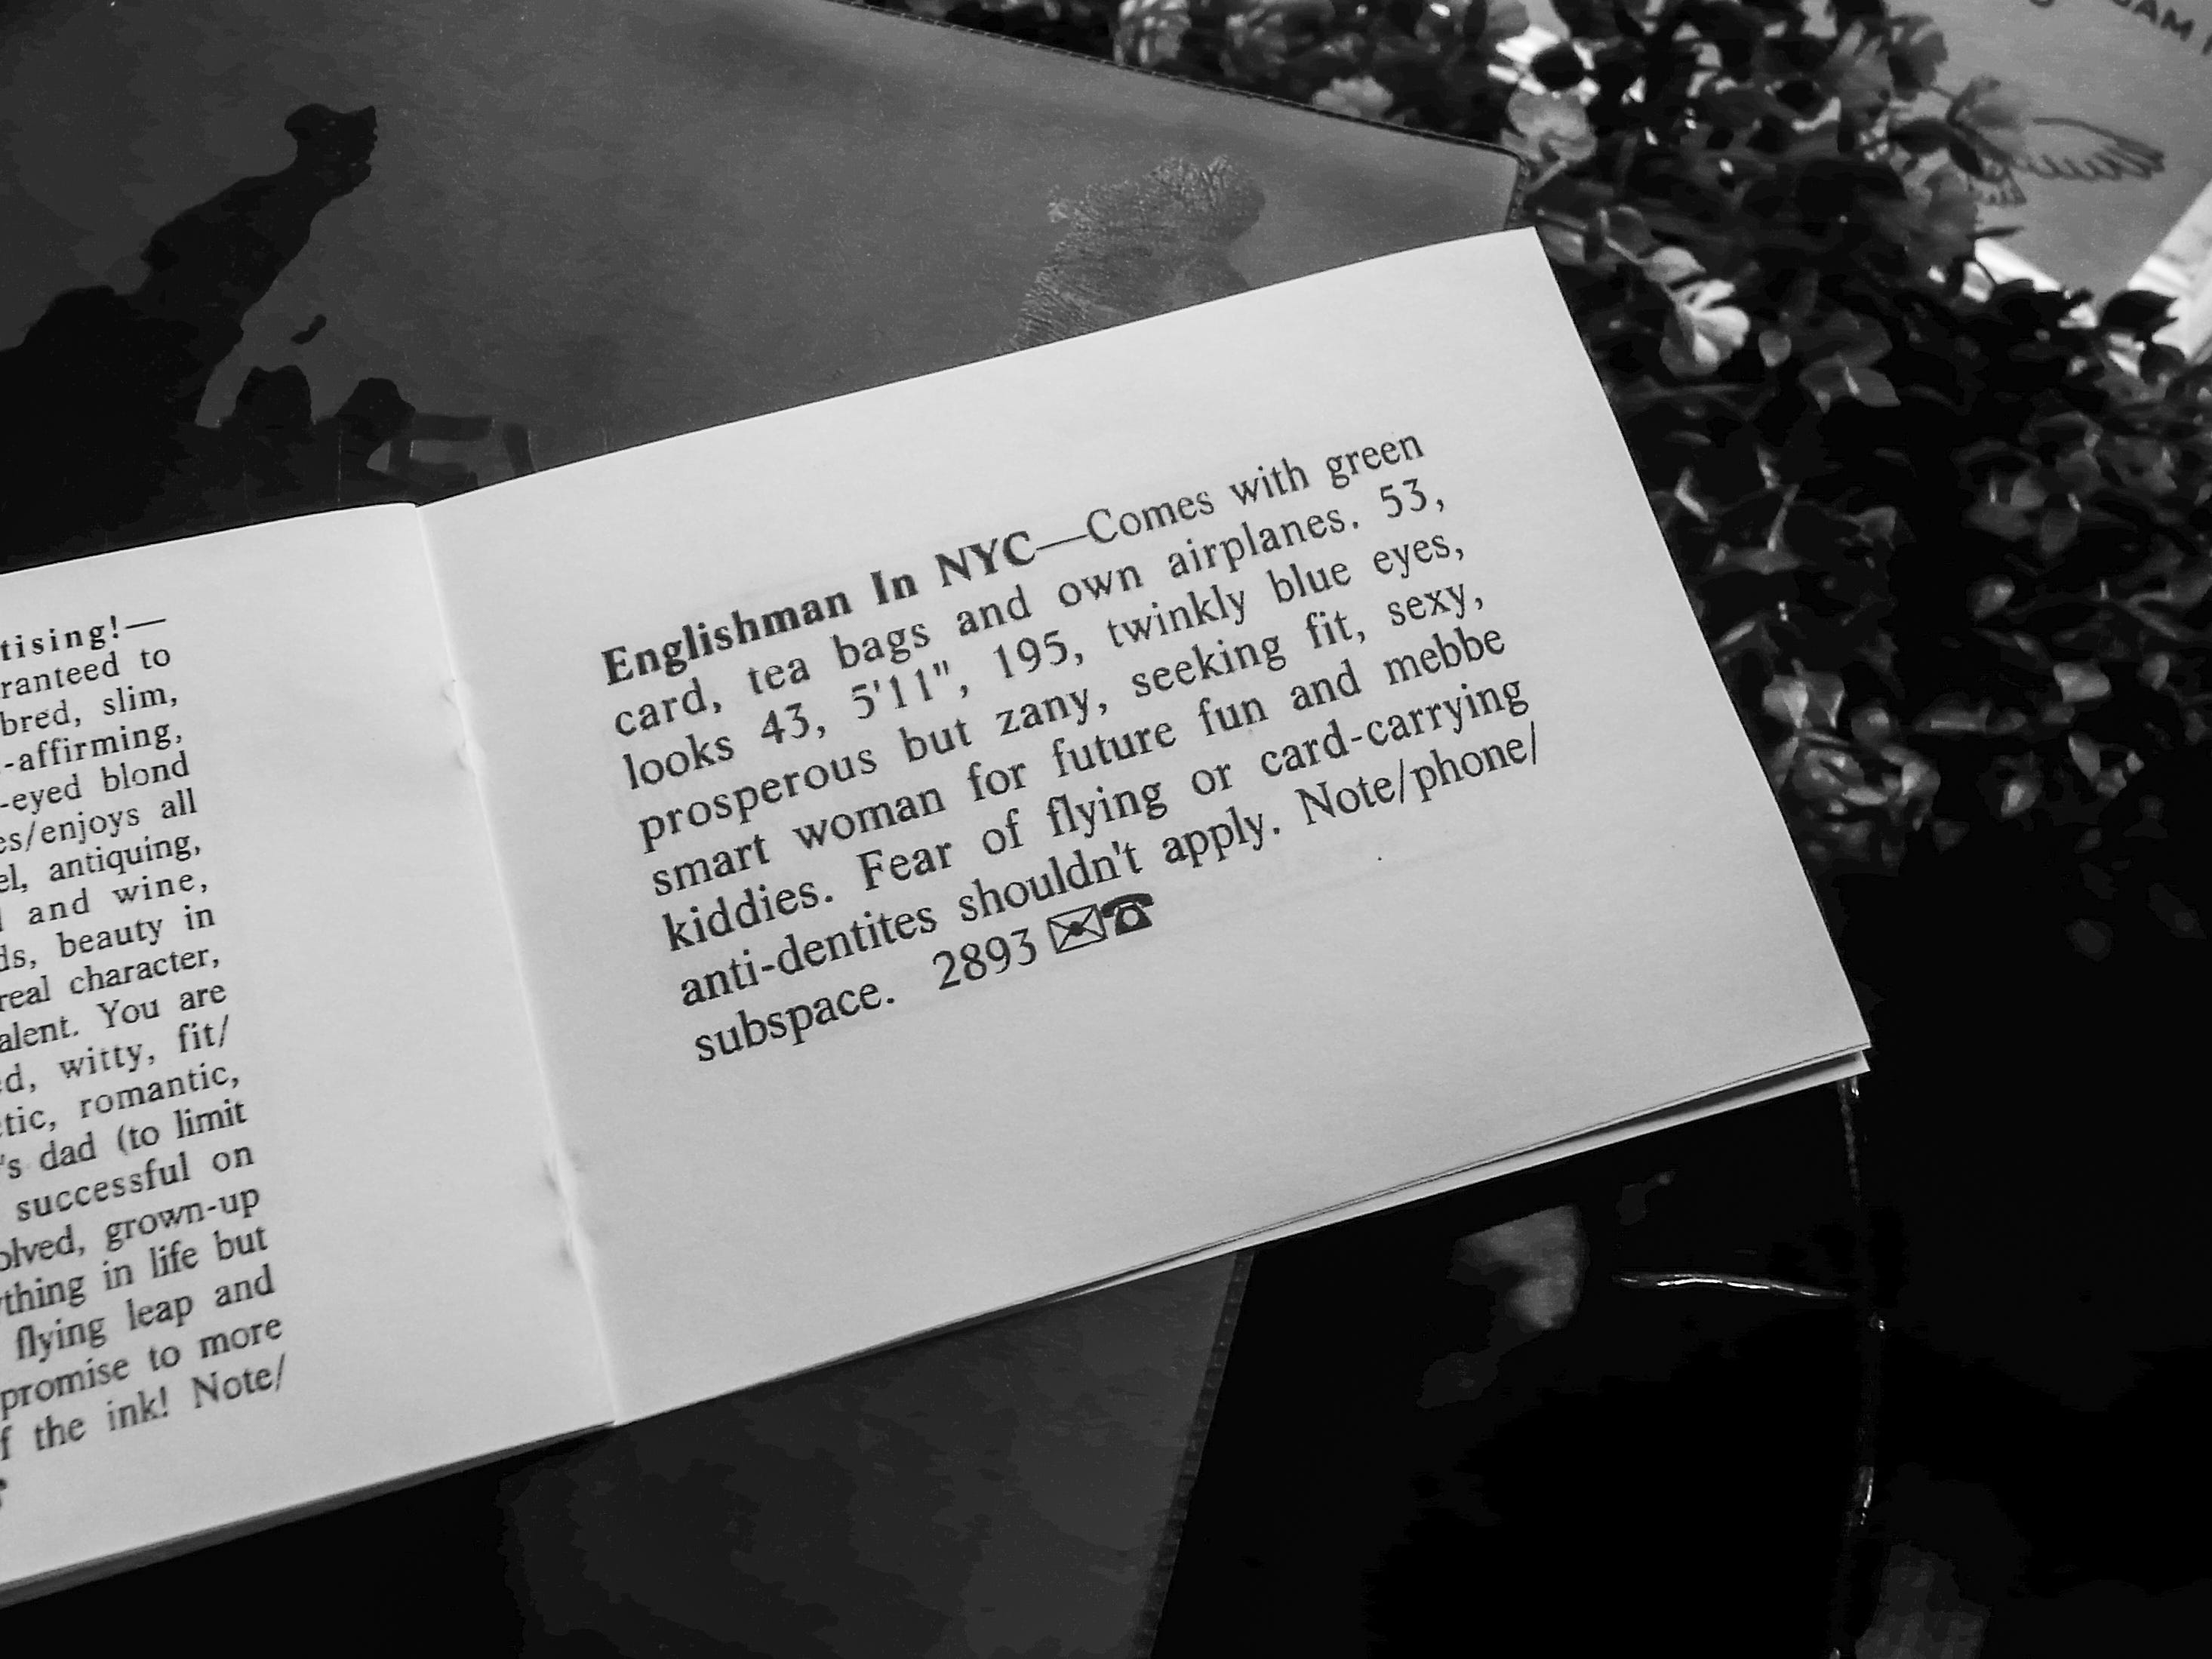 tising!—
ranteed to
bred, slim,
-affirming,
-eyed blond
es/enjoys all
el, antiquing,
and wine,
ds, beauty in
real character,
alent. You are
ed, witty, fit/
etic, romantic,
's dad (to limit
successful on
olved, grown-up
ything in life but
flying leap and
promise to more
f the ink! Note/
Englishman In NYC—Comes with green
card, tea bags and own airplanes. 53,
looks 43, 5'11", 195, twinkly blue eyes,
prosperous but zany, seeking fit, sexy,
smart woman for future fun and mebbe
kiddies. Fear of flying or card-carrying
anti-dentites shouldn't apply. Note/phone/
subspace. 2893 ✉☎